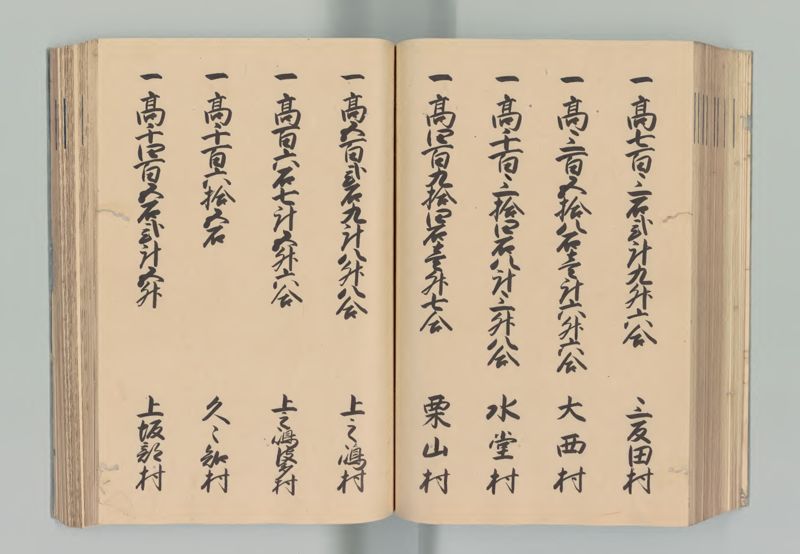 一 高七百三石弐斗九升六合 三反田村
一 高三百五拾八石壱斗六升六合 大西村
一 高千百三拾四石八斗三升八合 水堂村
一 高四百九拾四石壱斗七合 栗山村
一 高五百弐石九斗八升八合 上之嶋村
一 高百六石七斗五升六合 上之嶋 村
一 高千百六拾五石 久々知村
一 高千四百五石弐斗五升 上坂部村